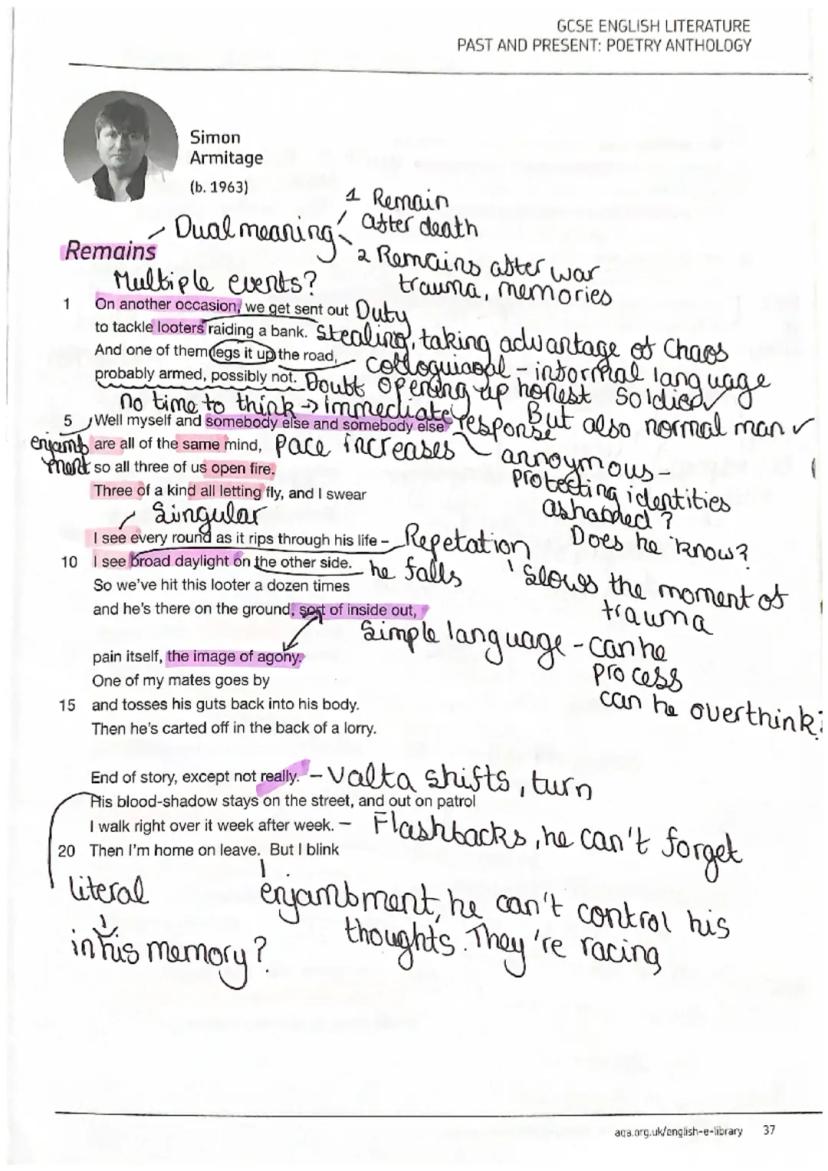 GCSE ENGLISH LITERATURE
PAST AND PRESENT: POETRY ANTHOLOGY
Simon
Armitage
(b. 1963)
Remains
Dual meaning
1 Remain
after death
2 Remains after war
trauma, memories
Multiple events?
1 On another occasion, we get sent out Duty
to tackle looters raiding a bank. Stealing, taking advantage of Chaos
And one of them legs it up the road, colloquiqal - informal language
probably armed, possibly not. Doubt opening up honest Soldier
no time to think → immediate response But also normal man
5 Well myself and somebody else and somebody else
enjambment
are all of the same mind, pace increases
annoymous -
protecting identities
ashamed?
Does he know?
so all three of us open fire.
Three of a kind all letting fly, and I swear
Singular
I see every round as it rips through his life – Repetation
10 I see broad daylight on the other side. he falls
Slows the moment of
trauma
So we've hit this looter a dozen times
and he's there on the ground, sort of inside out,
Simple language - can he
process
can he overthink?
pain itself, the image of agony.
One of my mates goes by
15 and tosses his guts back into his body.
Then he's carted off in the back of a lorry.
End of story, except not really. - Valta shifts, turn
His blood-shadow stays on the street, and out on patrol
I walk right over it week after week. - Flashbacks, he can't forget
20 Then I'm home on leave. But I blink
literal
in his memory?
enjambment, he can't control his
thoughts. They're racing
aqa.org.uk/english-e-library 37